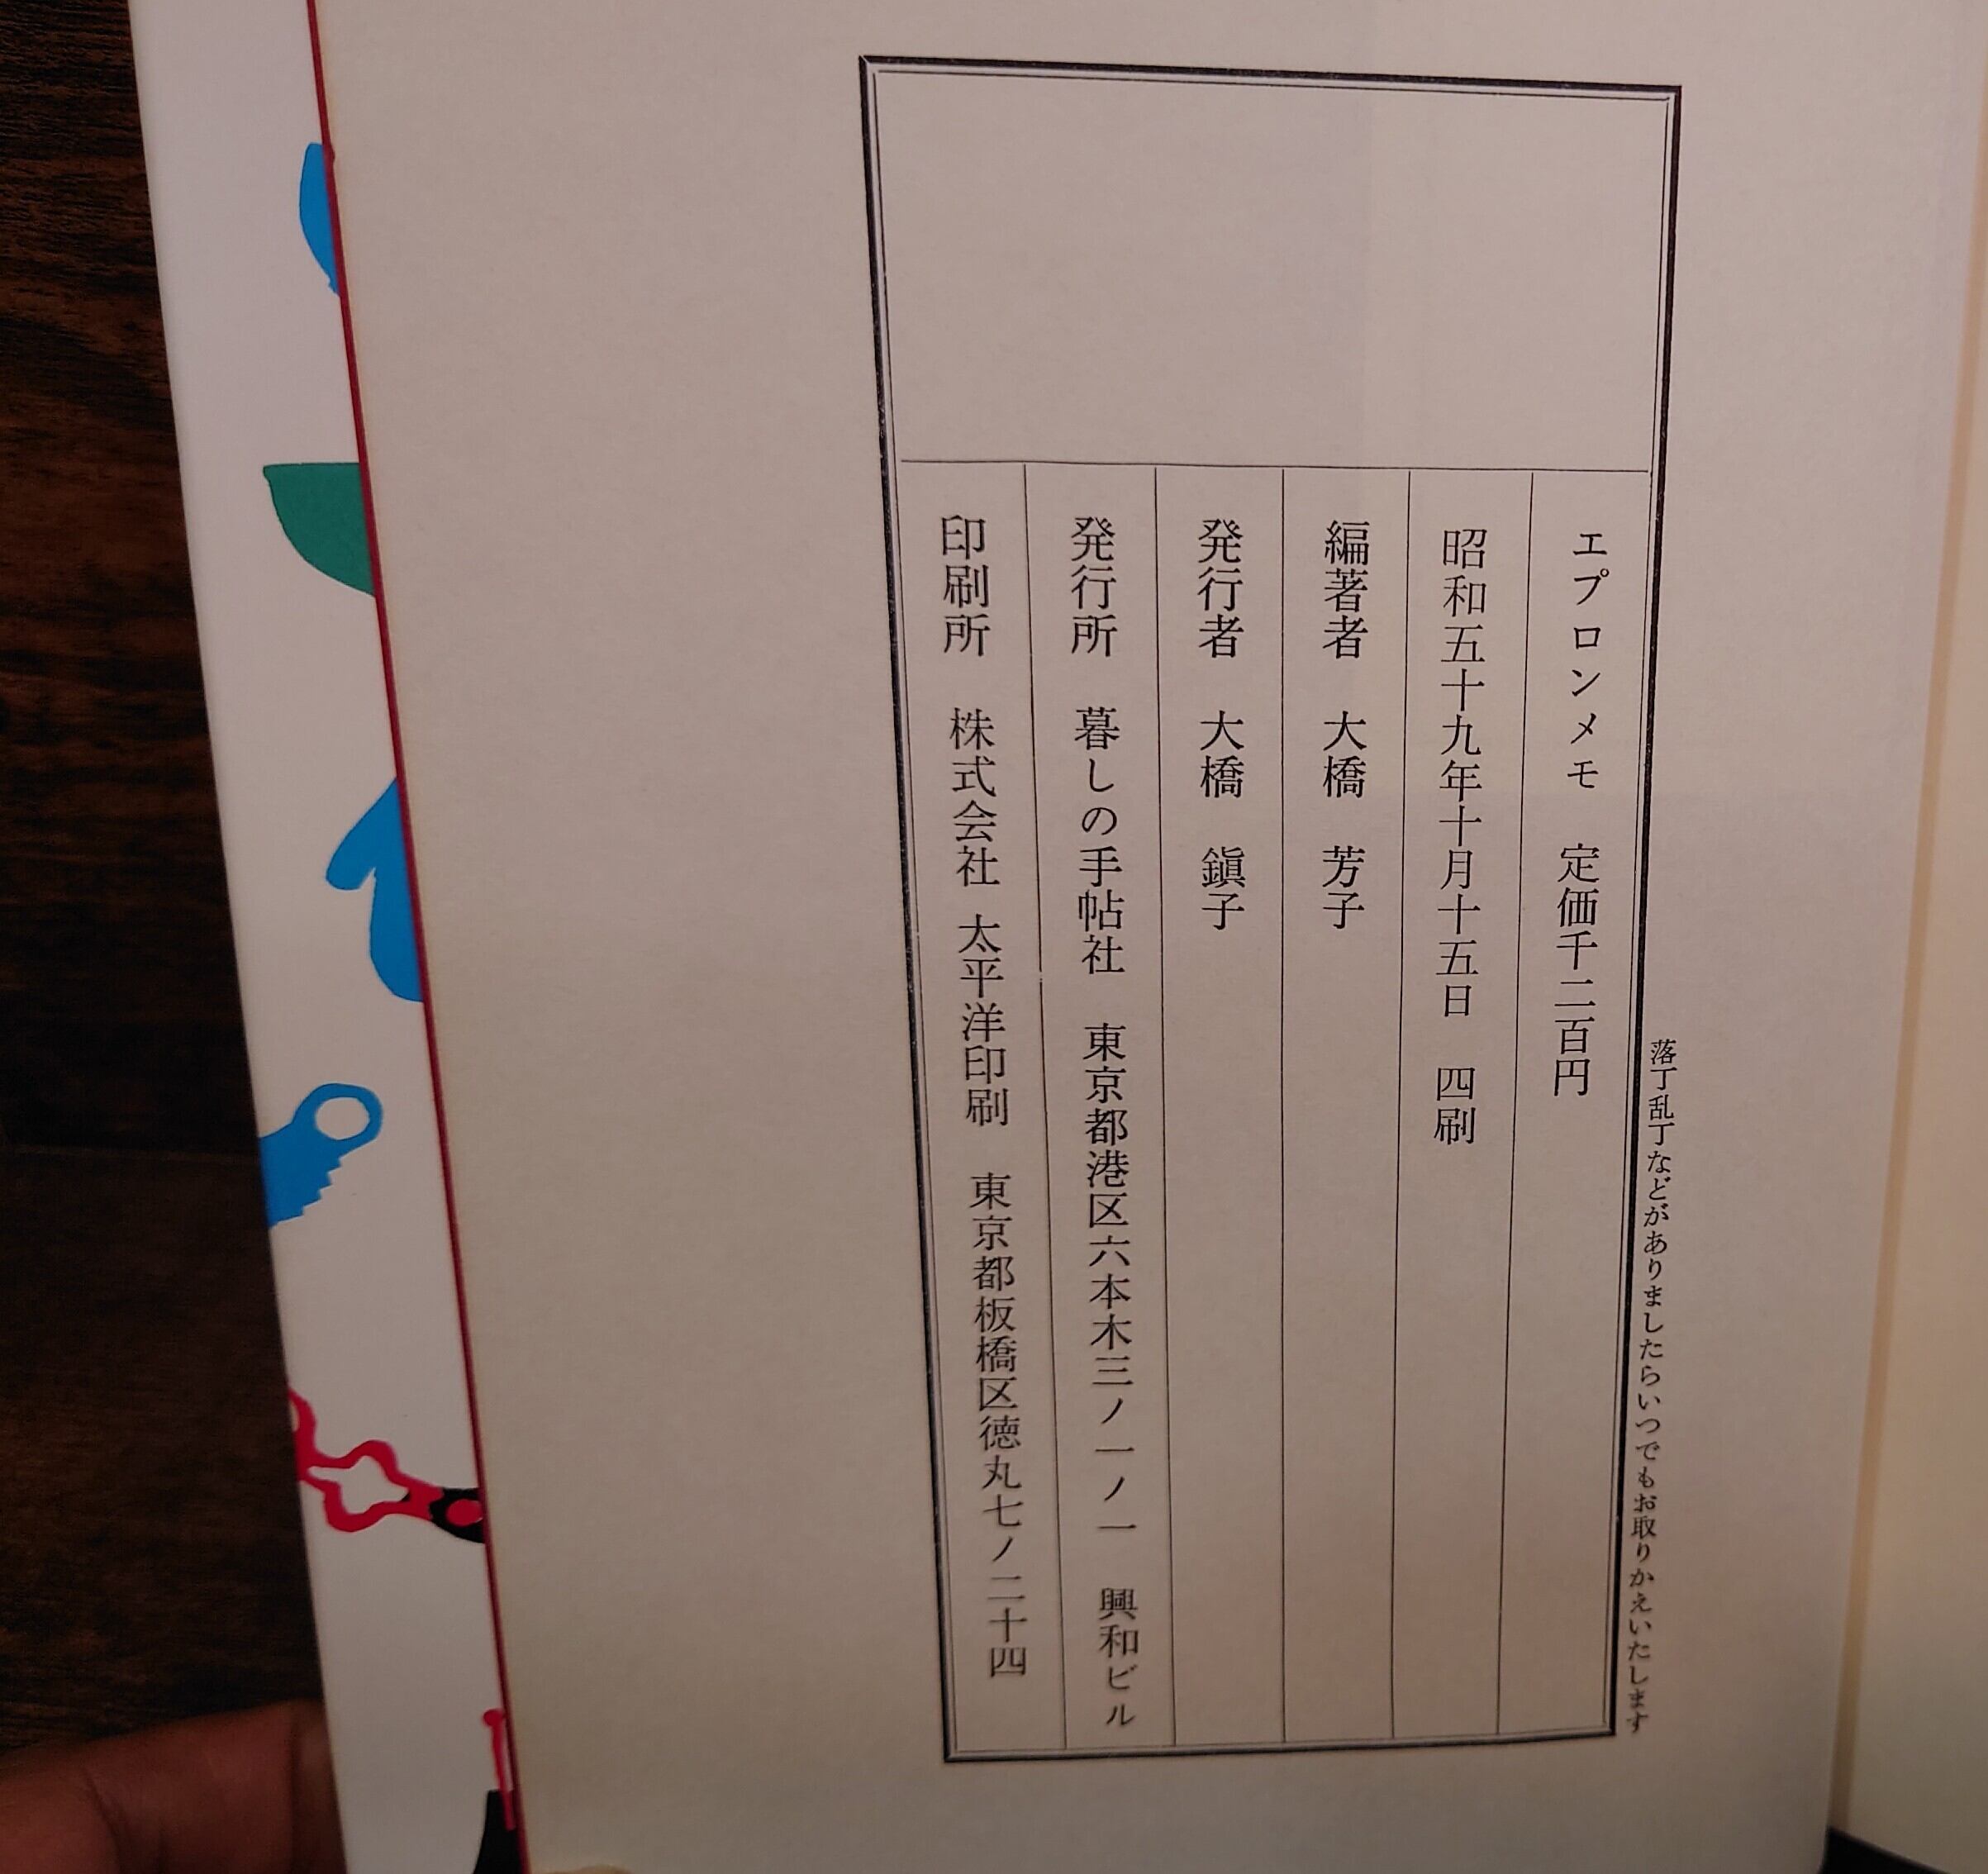 落丁乱丁などがありましたらいつでもお取りかえいたします
エプロンメモ　定価千二百円
昭和五十九年十月十五日　四刷
編著者　大橋　芳子
発行者　大橋　鎭子
発行所　暮しの手帖社　東京都港区六本木三ノ一ノ一　興和ビル
印刷所　株式会社 太平洋印刷　東京都板橋区徳丸七ノ二十四